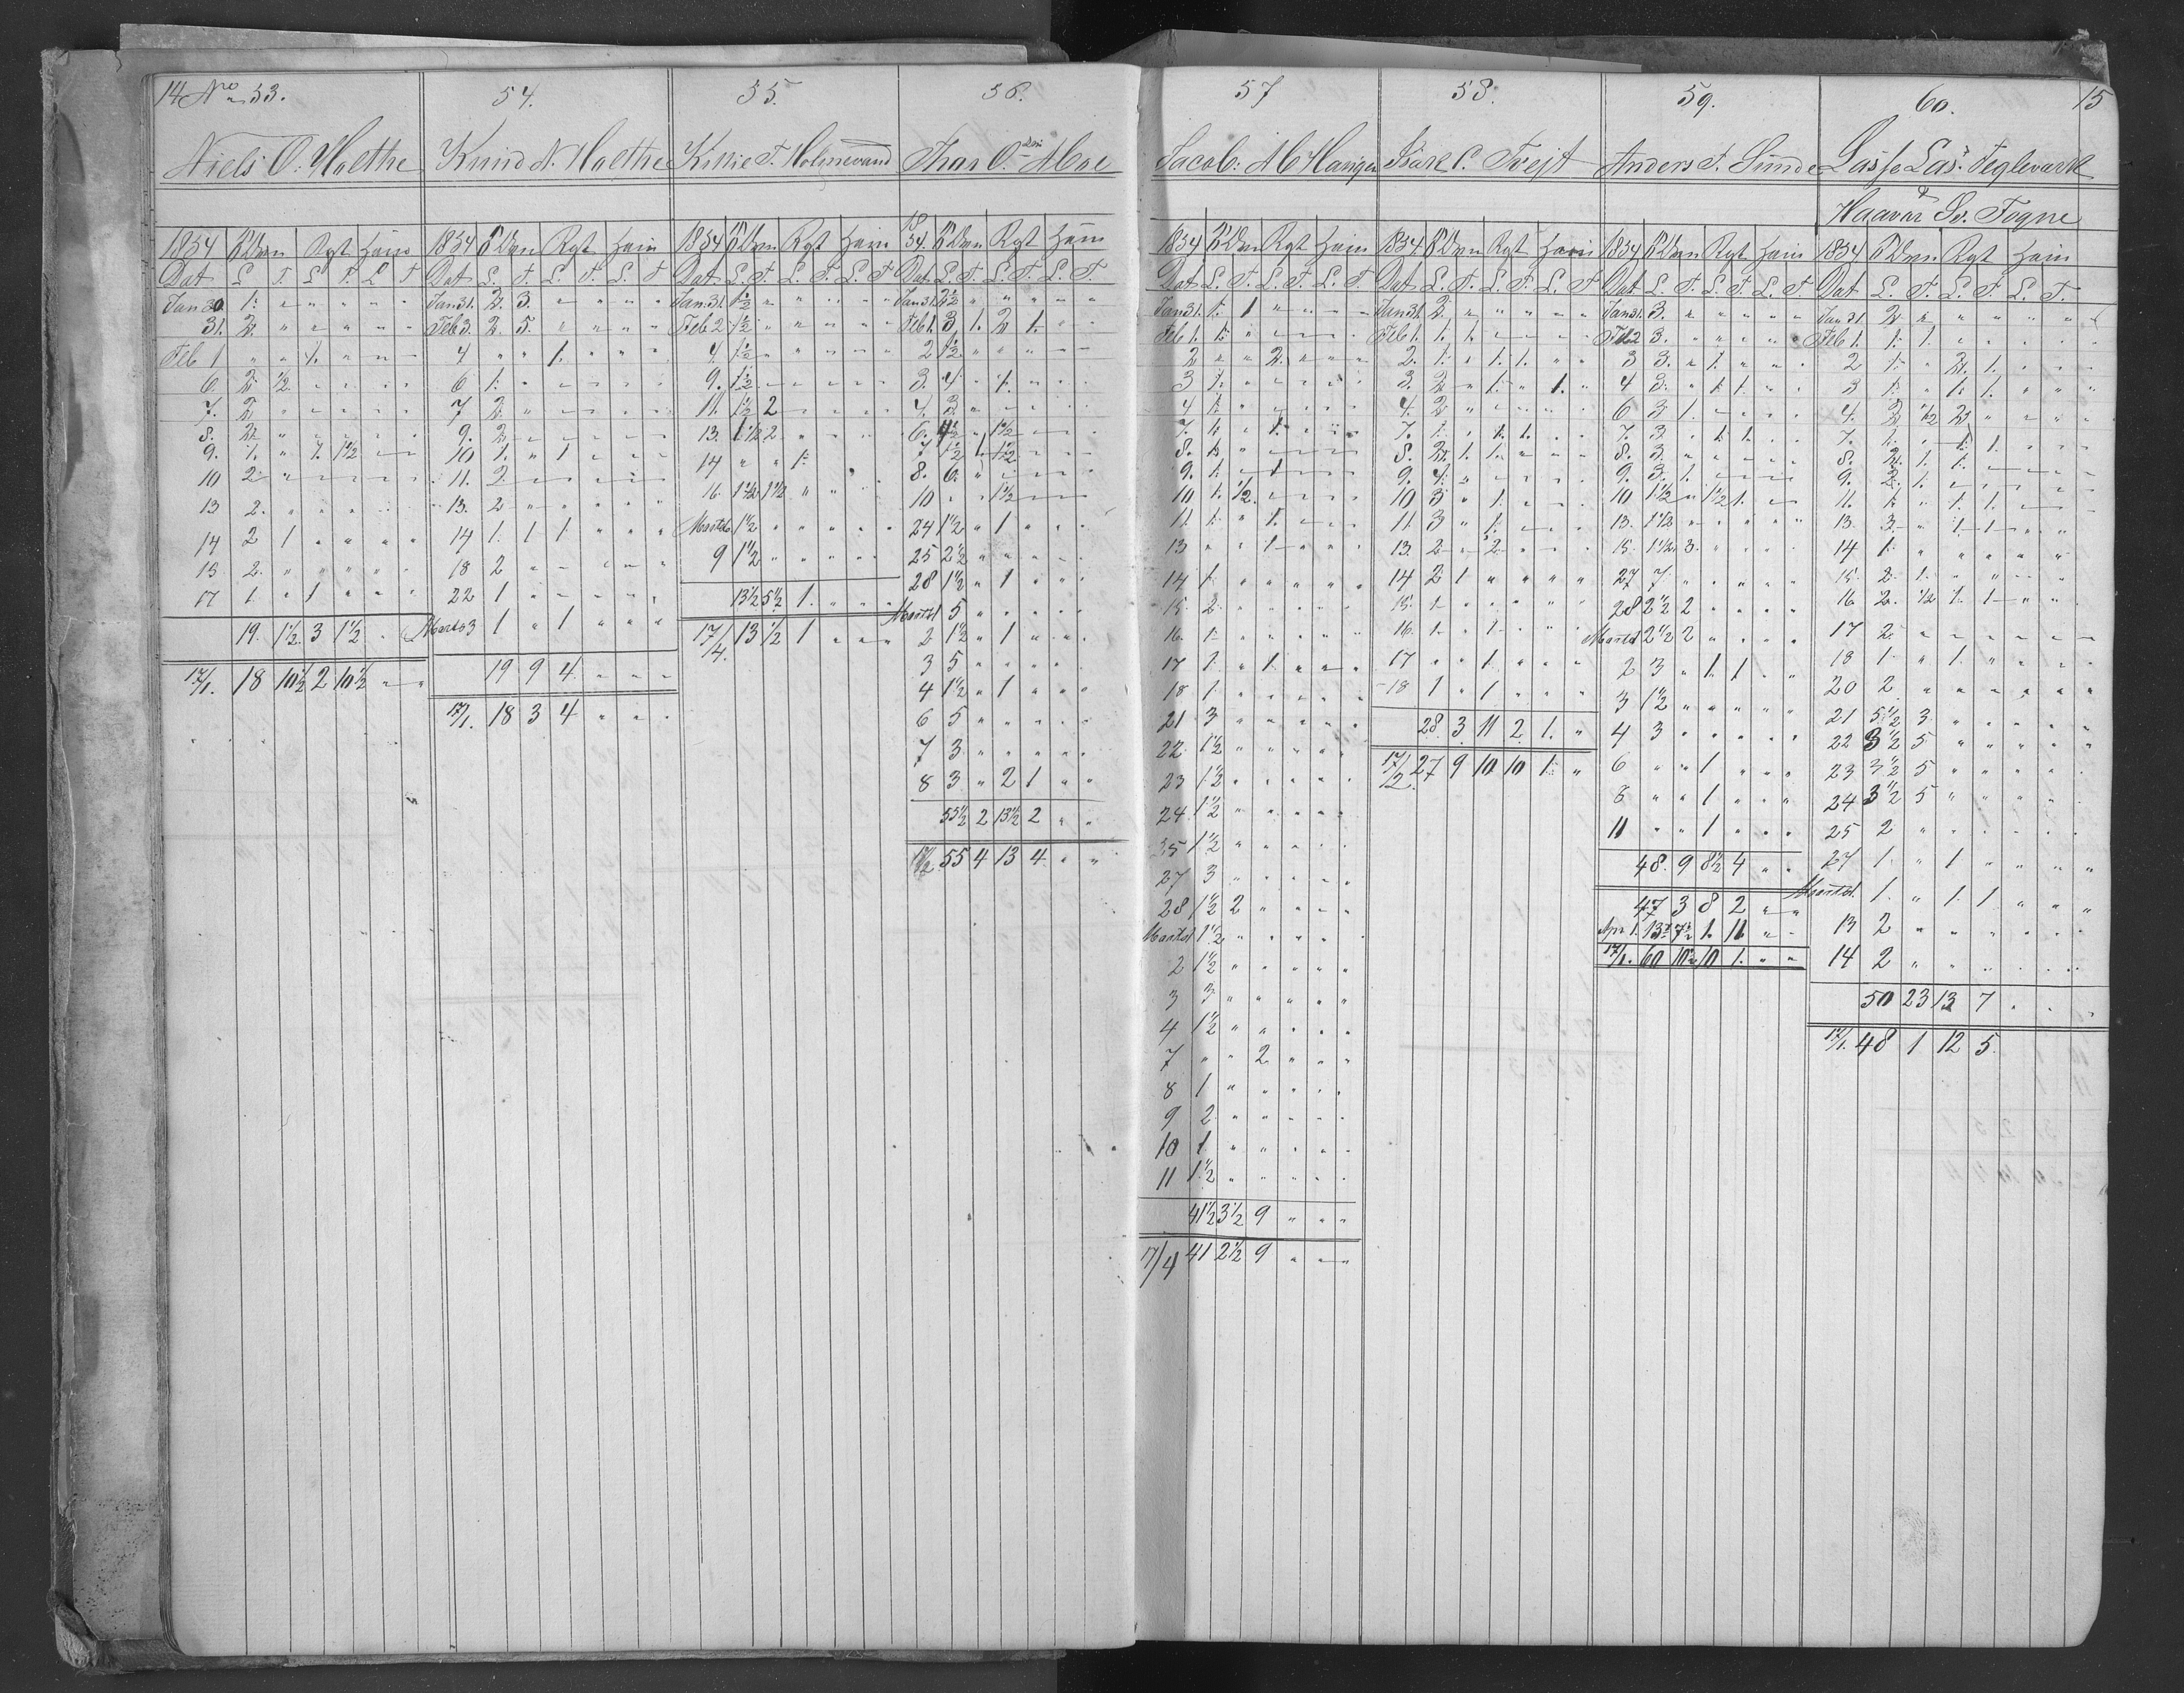 14 No 53.
Niels O. Moethe
1854
Dat L T L T L T
Jan 30 1. " " " " "
31. 2 " " " " "
Feb 1 " " 1. " " "
6. 2 1/2 " " " "
7. 2 " " " " "
8. 2 " " " " "
9. 1. " 1. 1 1/2 " "
10 2 " " " " "
13 2. " " " " "
14 2 1 " " " "
15 2. " " " " "
17 1. " 1 " " "
19. 1 1/2. 3 1 1/2 " "
17/1. 18 10 1/2 2 10 1/2 " "
54.
Knud N. Moethe
1854
Dat L. T. L. T. L. T
Jan 31. 2 3. " " " "
Feb 3. 2 5. " " " "
4 " " 1. " " "
6 1. " " " " "
7 2. " " " " "
9. 2 " " " " "
10 1. " 1 " " "
11. 2. " " " " "
13. 2 " " " " "
14 1. 1 1. " " "
18 2 " " " " "
22 1 " " " " "
Marts 3 1 " 1 " " "
19 9 4 " " "
17/1. 18 3 4 " " "
55.
Kittil T. Holmevand
1854
Dat L. T. L. T. L. T
Jan 31. 1 1/2 " " " " "
Feb 2. 1 1/2 " " " " "
4. 1 1/2 " " " " "
9. 1 1/2 " " " " "
11. 1 1/2 2 " " " "
13. 1 1/2 2 " " " "
14 " " 1.
16. 1 1/2 1 1/2 " "
9 1 1/2 " " " " "
13 1/2 5 1/2 1. " " "
17/4. 13 1/2 1 " " "
56.
Thor O. Moe
1854.
Dat L. T. L. T. L. T.
Jan 31. 2 1/2 " " " " "
Feb 1. 3 1. 2 1. " "
2 1 1/2 " " " " "
3. 4 " 1. " " "
4. 3 " " " " "
8. 6. " " " " "
10 " " 1 1/2 " " "
24 1 1/2 " 1 " " "
25 2 1/2 " " " " "
28 1 1/2 " 1 " " "
Marts 1 5 " " " " "
2 1 1/2 " 1 " " "
3 5 " " " " "
4 1 1/2 " 1 " " "
6 5 " " " " "
7 3 " " " " "
8 3 " 2 1 " "
55 1/2 2 13 1/2 2 " "
17/2 55 4 13 4 " "
57
Jacob. A
1854
Dat L. T. L. T. L. T.
Jan 31. 1. 1 " " " "
Feb 1. 1. " " " " "
2 " " 2. " " "
3 1. " " " " "
4 1. " " " " "
7. 1. " 1. " " "
8. 1. " " " " "
9. 1. " 1 " " "
10 1. 1/2. " " " "
11. 1. " 1. " " "
13 " " 1 " " "
14 1. " " " " "
15. 2. " " " " "
16. 1. " " " " "
17 1. " 1. " " "
18 1. " " " " "
21. 3 " " " " "
22. 1 1/2 " " " " "
23 1 1/2 " " " " "
24 1 1/2 " " " " "
25 1 1/2 " " " " "
27 3 " " " " "
28 1 1/2 2 " " " "
Marts 1 1 1/2 " " " " "
2 1 1/2 " " " " "
3 3 " " " " "
4 1 1/2 " " " " "
7 " " 2 " " "
8 1 " " " " "
9 2 " " " " "
10 1. " " " " "
11 1 1/2 " " " " "
41 1/2 3 1/2 9 " " "
17/4 41 2 1/2 9 " " "
58.
Tvejt
1854.
Dat L. T. L. T. L. T
Jan 31. 2. " " " " "
Feb 1. 1. 1. " " " "
2. 1. " 1. 1. " "
3. 2 " 1. " 1. "
4. 2 " " " " "
7. 1. " 1. 1. " "
8. 2. 1. 1. " " "
9. 4. " " " " "
10 3 " 1. " " "
11. 3 " 1. " " "
13. 2 " 2. " " "
14 2 1 " " " "
15. 1 " " " " "
16. 1. " 1. " " "
17 " " 1. " " "
18 1 " 1 " " "
28. 3 11 2 1. "
17/2. 27 9 10 10 1. "
59.
Anders T. Sunde
1854
Dat L. T. L. T. L. T
Jan 31. 3. " " " " "
Feb 2 3. " " " " "
3 3. " 1. " " "
4 3. " 1. 1. " "
6 3 1. " " " "
7. 3 " 1. 1. " "
8. 3. " " " " "
9. 3. 1. " " " "
10 1 1/2 " 1 1/2 1. " "
13. 1 1/2 " " " " "
15. 1 1/2 3. " " " "
27 7 " " " " "
28 2 1/2 2 " " " "
Marts 1 2 1/2 2 " " " "
2 3 " 1. 1. " "
3 1 1/2 " " " " "
4 3 " " " " "
6 " " 1 " " "
8 " " 1 " " "
11 " " 1 " " "
48. 9 8 1/2 4 " "
47 3 8 2 " "
17/1. 60 10 1/2 10 1. " "
60. 15
Lasse Las. Teglevark
&
Haavar Sv. Fogne
1854
Dat L. T. L. T. L. T.
Jan 31 2 " " " " "
Feb 1. 1. 1. " " " "
2 1. " 2. 1. " "
3 1. " 1. 1. " "
4. 2 1/2 2 " " "
7. 1. " 1. 1. " "
8. 2. 1. 1. " " "
9. 2. 1. " " " "
11. 1. " 1. 1. " "
13. 3. " 1. 1 " "
14 1. " " " " "
15. 2. 1. " " " "
16. 2. 1/2 1. 1 " "
17 2. " " " " "
18 1. " 1. " " "
20 2 " " " " "
21 5 1/2 3. " " " "
22 3 1/2 5 " " " "
23 3 1/2 5 " " " "
24 3 1/2 5 " " " "
25 2 " " " " "
27 1. " 1 " " "
Marts 1. 1. " 1. 1 " "
13 2 " " " " "
14 2 " " " " "
50 23 13 7 " "
17/1. 48 1 12 5.